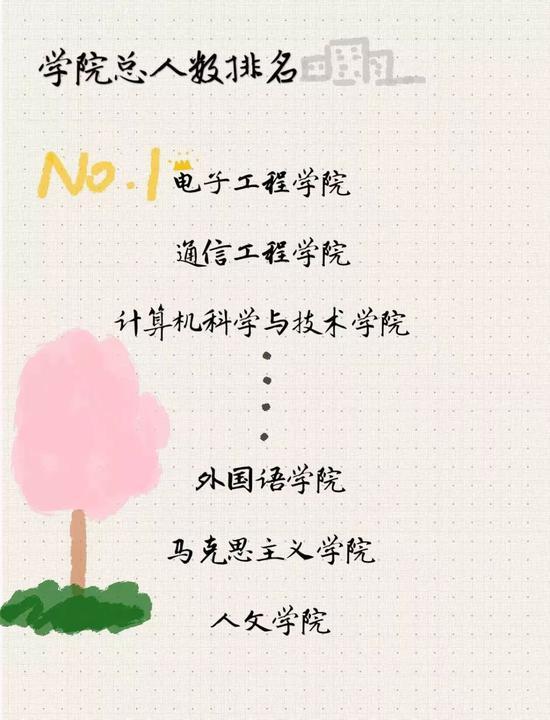 学院总人数排名
No.1 电子工程学院
通信工程学院
计算机科学与技术学院
外国语学院
马克思主义学院
人文学院